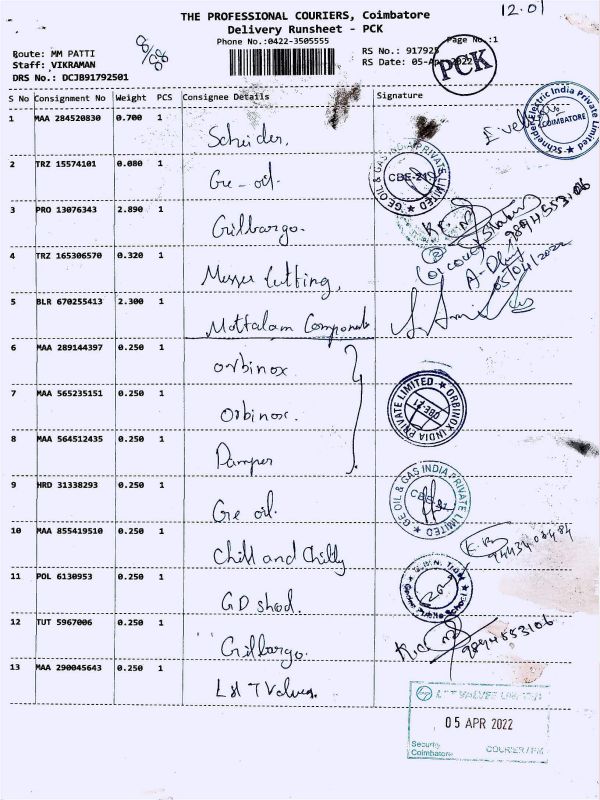 12.01
THE PROFESSIONAL COURIERS, Coimbatore
Delivery Runsheet - PCK
Phone No.:0422-3505555
Page No.:1
Route: MM PATTI
Staff: VIKRAMAN
DRS No.: DCJB91792501
RS No.: 917925
RS Date: 05-Apr-2022
PCK
S No Consignment No Weight PCS Consignee Details Signature
1 MAA 284520830 0.700 1 Scheider.
Schneider Electric India Private Limited
COIMBATORE
2 TRZ 15574101 0.080 1 Ge-oil.
GE OIL & GAS INDIA PRIVATE LIMITED
CBE-21
3 PRO 13076343 2.890 1 Gilbargo.
9894553106
4 TRZ 165306570 0.320 1 Messer Cutting,
05/04/2022
5 BLR 670255413 2.300 1 Mottalam Components
6 MAA 289144397 0.250 1 orbinox.
7 MAA 565235151 0.250 1 Orbinox.
ORBINOX INDIA PRIVATE LIMITED
8 MAA 564512435 0.250 1 Pamper
9 HRD 31338293 0.250 1 Ge oil.
GE OIL & GAS INDIA PRIVATE LIMITED
10 MAA 855419510 0.250 1 Chill and Chilly
9443408484
11 POL 6130953 0.250 1 GD shod.
12 TUT 5967006 0.250 1 Gilbargo.
9894553106
13 MAA 290045643 0.250 1 L&T Valves.
L&T VALVES LIMITED
05 APR 2022
Security
Coimbatore
COURIER / P.M.